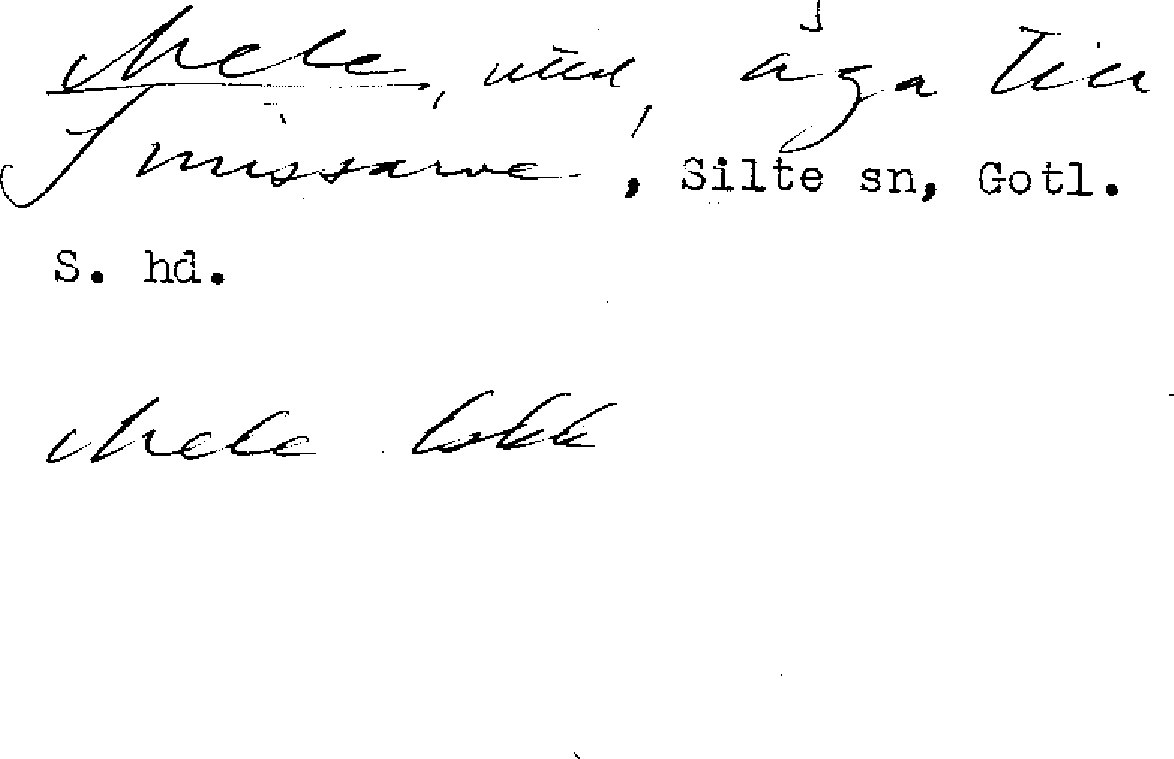 Mele, äga till
Smissarve, Silte sn, Gotl.
S. hd.
Mele